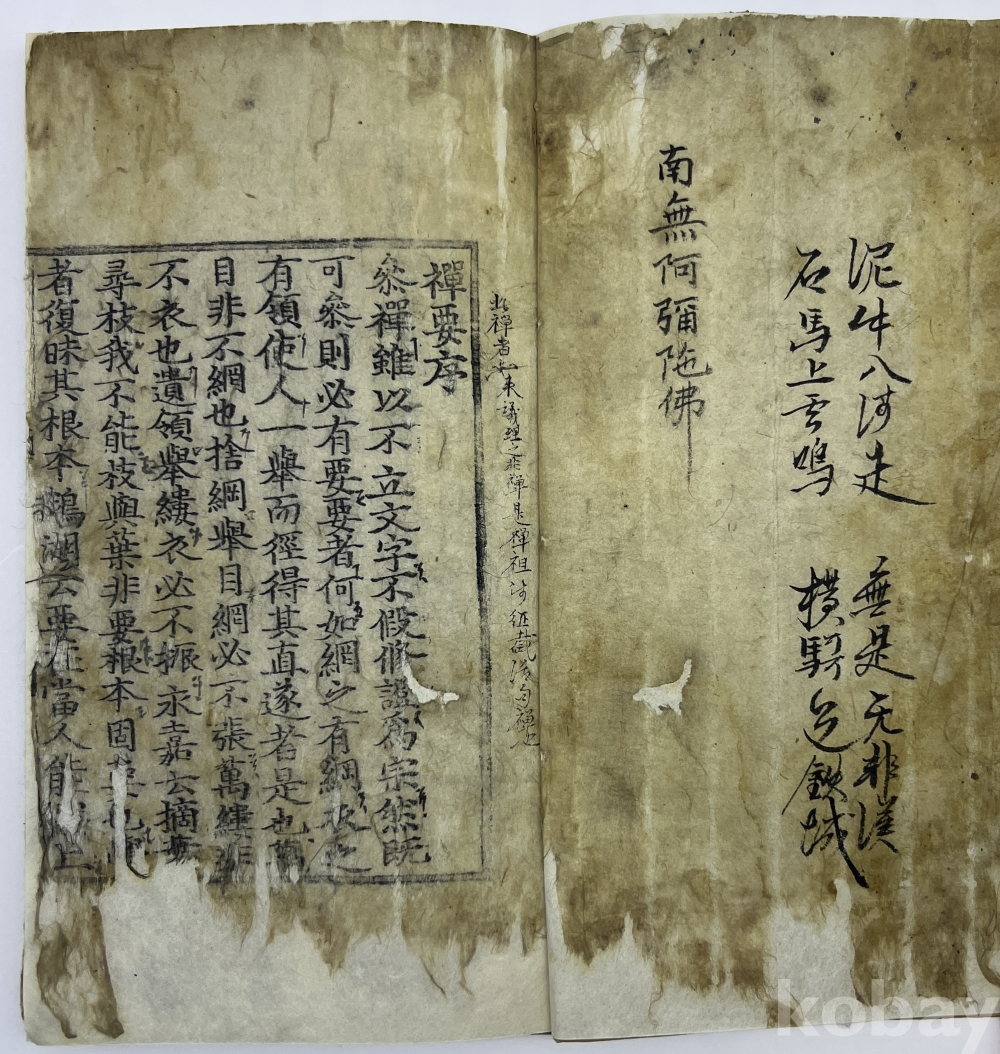 泥牛八河走 無是无非漢
石馬上雲鳴 横騎鉄城
南無阿彌陀佛
此禪者議理之禪是禪祖
禪要序
叅禪雖以不立文字不假修證爲宗然既
可叅則必有要要者何如網之有綱衣之
有領使人一舉而徑得其直遂者是也萬
目非不網也捨綱舉目網必不張萬縷非
不衣也遺領舉縷衣必不振永嘉云摘葉
尋枝我不能枝與葉非要根本固要也學
者復昧其根本鵝湖云要在當人能上
kobay